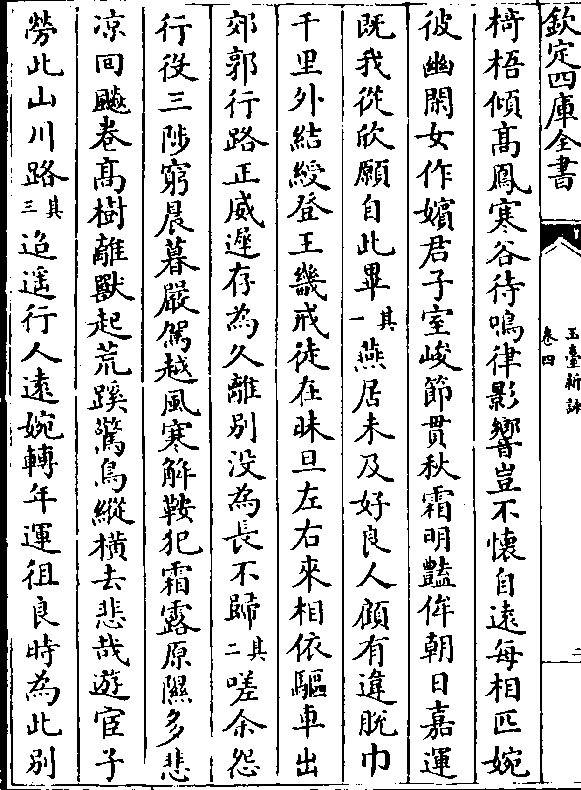 欽定四庫全書
玉臺新詠
卷四
二
椅梧傾高鳳寒谷待鳴律影響豈不懷自遠每相匹婉
彼幽閑女作嬪君子室峻節貫秋霜明豔侔朝日嘉運
既我從欣願自此畢其一燕居未及好良人顧有違脱巾
千里外結綬登王畿戒徒在昧旦左右來相依驅車出
郊郭行路正威遲存為久離别没為長不歸其二嗟余怨
行役三陟窮晨暮嚴駕越風寒解鞍犯霜露原隰多悲
凉回飈卷高樹離獸起荒蹊驚鳥縱横去悲哉遊宦子
勞此山川路其三迢遥行人遠婉轉年運徂良時為此别